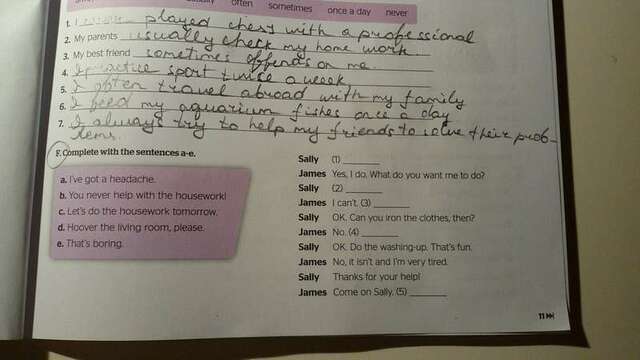 often sometimes once a day never
1. I played chess with a professional
2. My parents usually check my home work
3. My best friend sometimes offends on me
4. I practice sport twice a week
5. I often travel abroad with my family
6. I feed my aquarium fishes once a day
7. I always try to help my friends to solve their prob-
lems.
F. Complete with the sentences a-e.
a. I've got a headache.
b. You never help with the housework!
c. Let's do the housework tomorrow.
d. Hoover the living room, please.
e. That's boring.
Sally (1)
James Yes, I do. What do you want me to do?
Sally (2)
James I can't. (3)
Sally OK. Can you iron the clothes, then?
James No. (4)
Sally OK. Do the washing-up. That's fun.
James No, it isn't and I'm very tired.
Sally Thanks for your help!
James Come on Sally. (5)
11